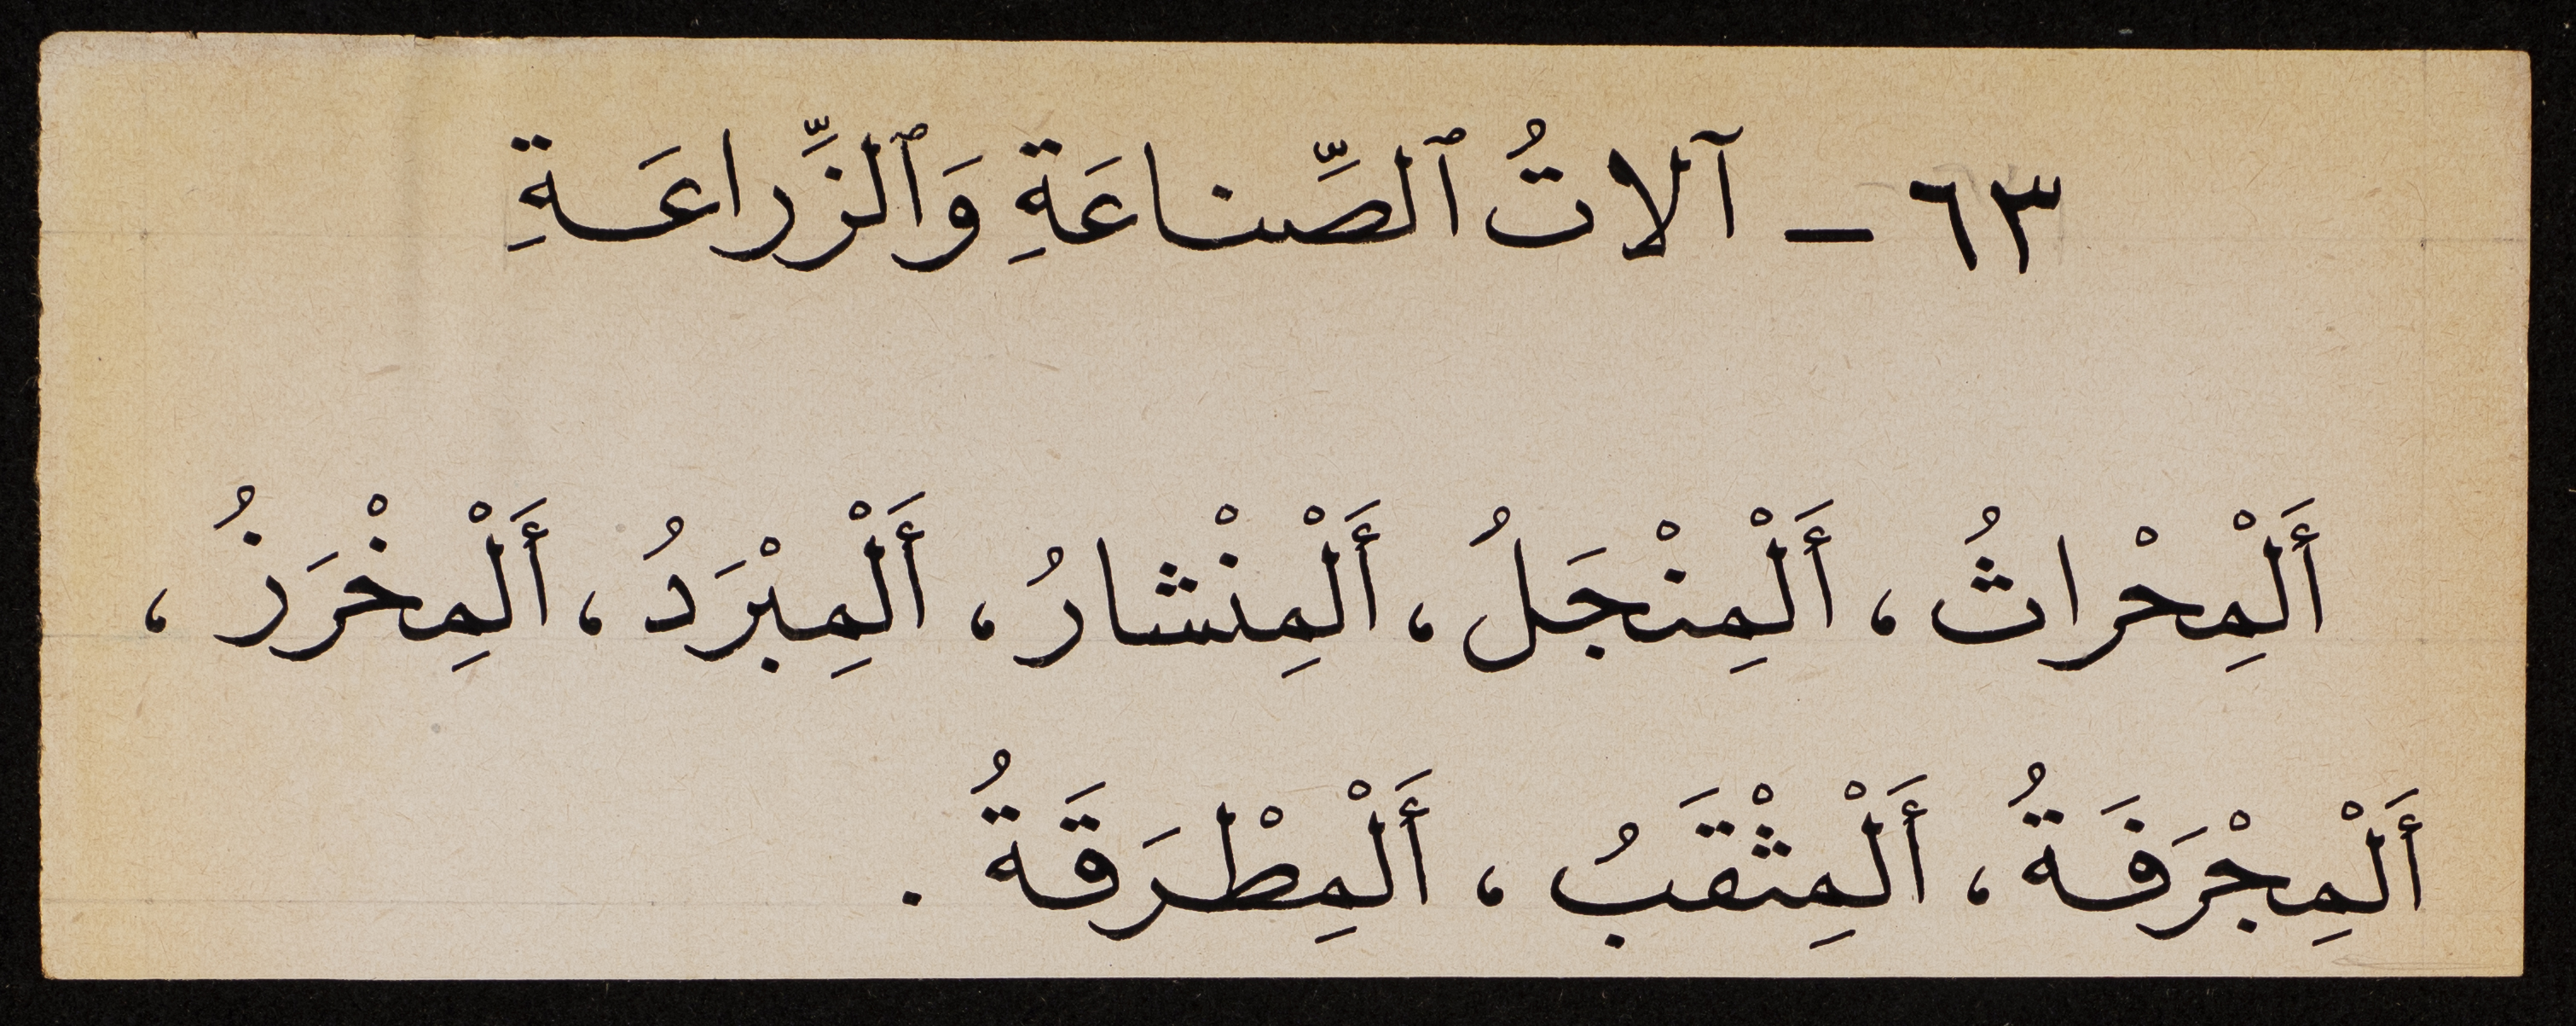 ٦٣ – آلاتُ ٱلصِّناعَةِ وَٱلزِّراعَةِ
أَلْمِحْراثُ ، أَلْمِنْجَلُ ، أَلْمِنْشارُ ، أَلْمِبْرَدُ ، أَلْمِخْرَزُ ،
أَلْمِجْرَفَةُ ، أَلْمِثْقَبُ ، أَلْمِطْرَقَةُ .